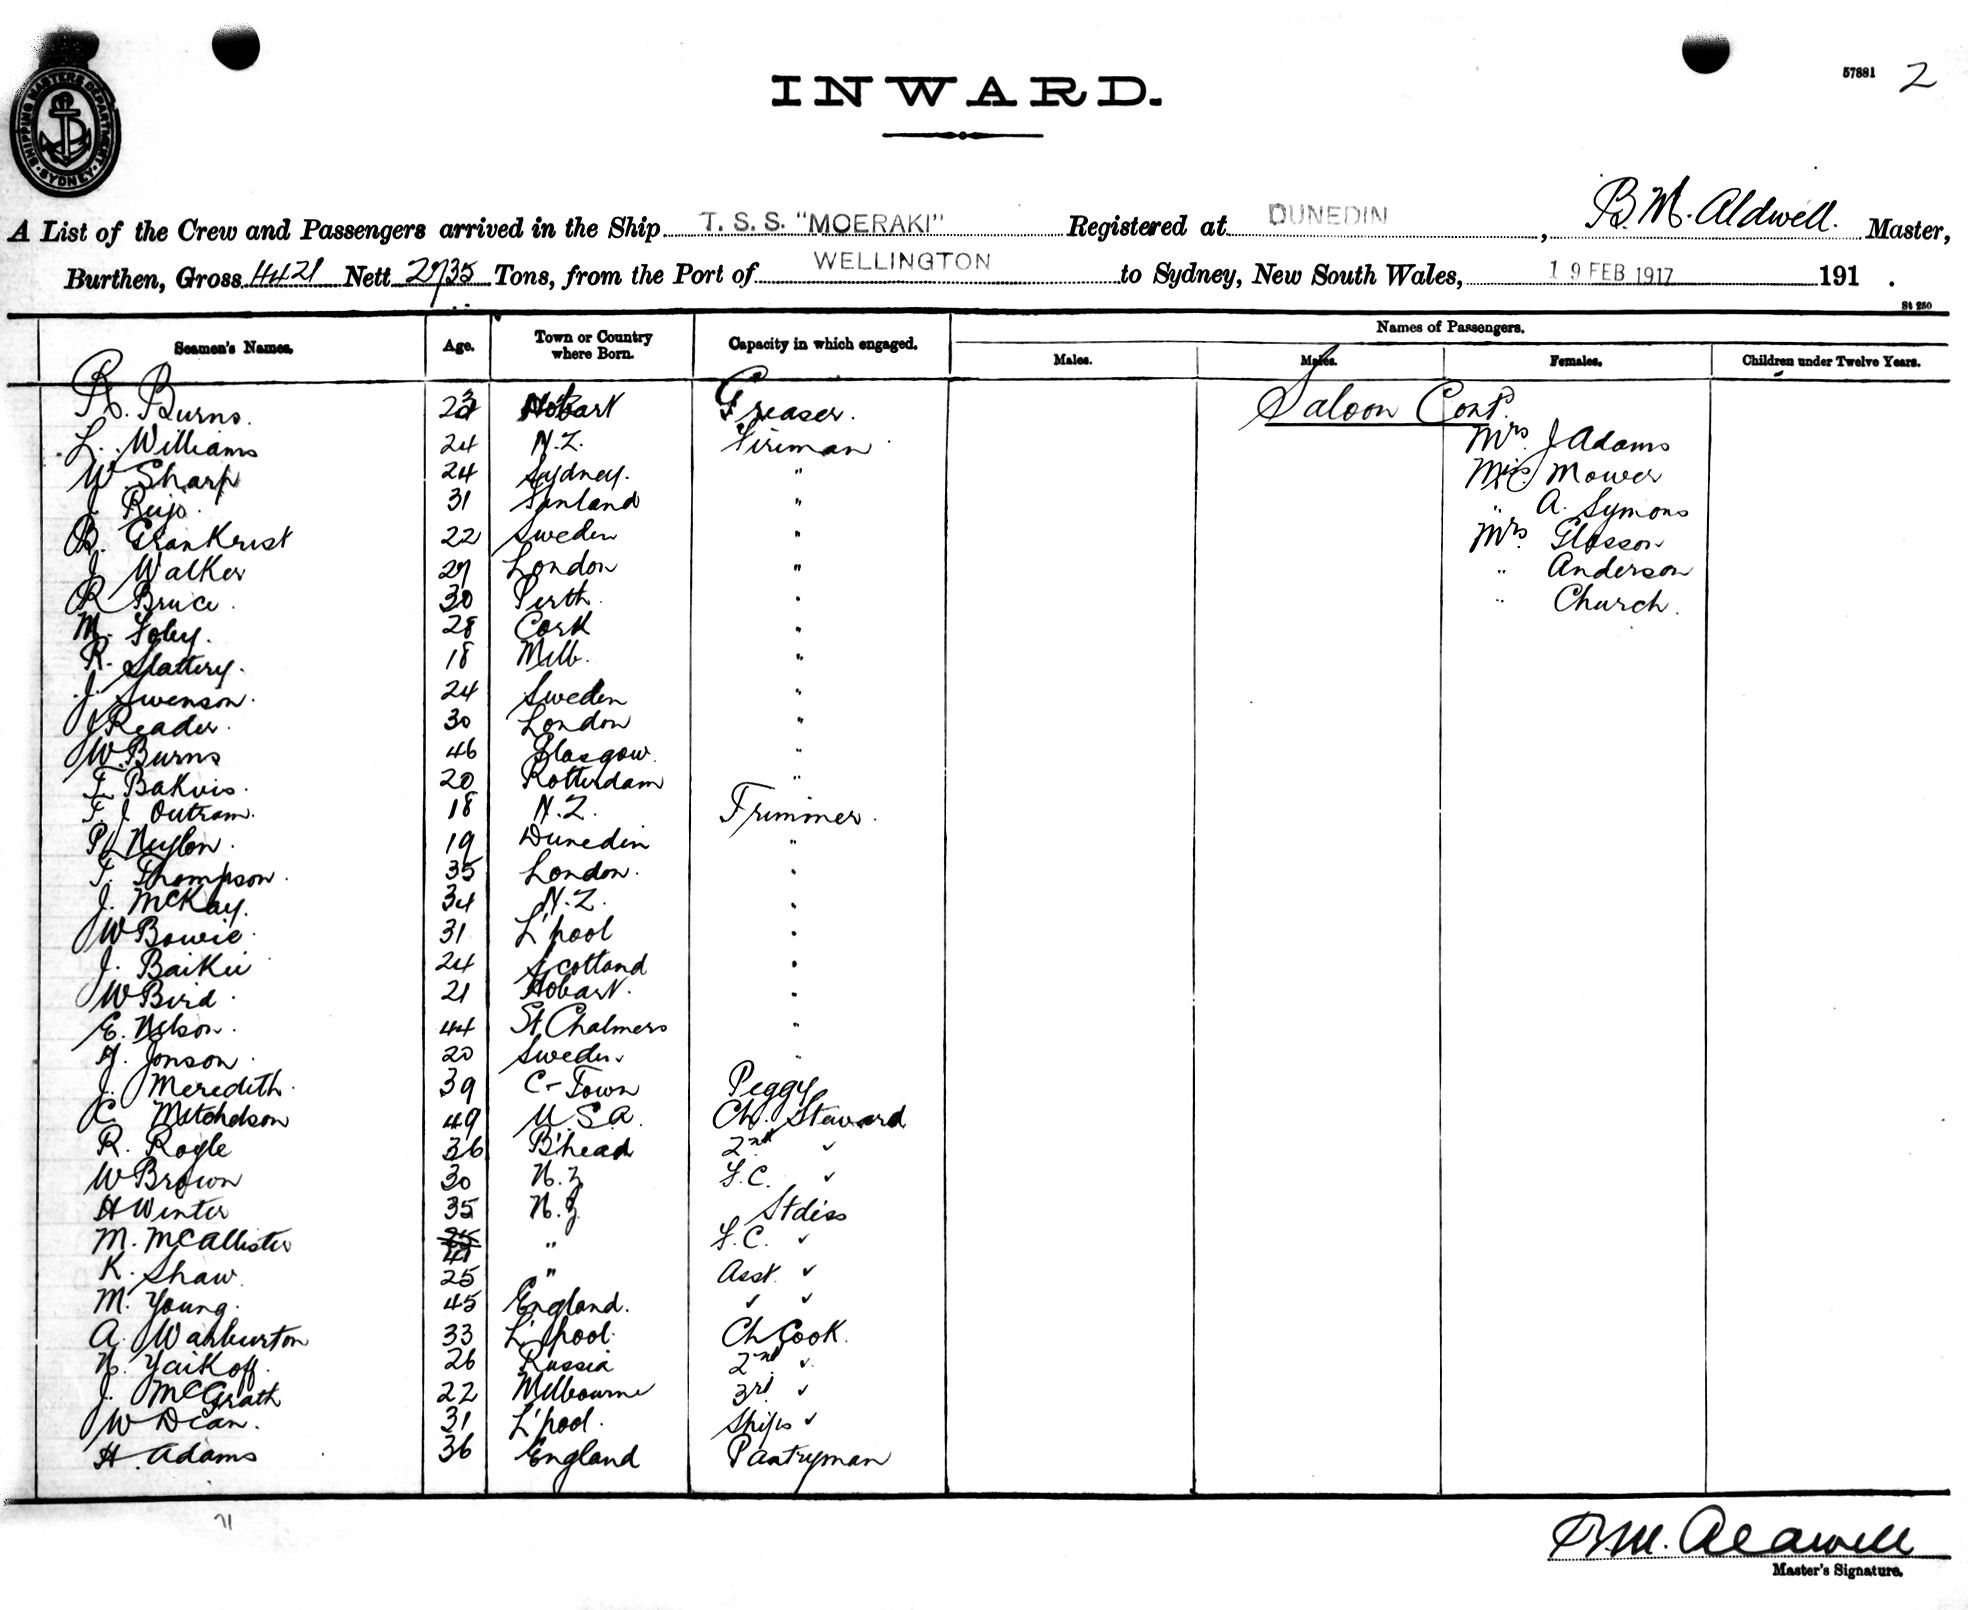 57881 2
SHIPPING MASTERS DEPARTMENT SYDNEY
INWARD.
A List of the Crew and Passengers arrived in the Ship T. S. S. "MOERAKI" Registered at DUNEDIN, B. M. Aldwell. Master,
Burthen, Gross 4421 Nett 2735 Tons, from the Port of WELLINGTON to Sydney, New South Wales, 19 FEB 1917 191 .
St 250
Seamen's Names. Age. Town or Country where Born. Capacity in which engaged. Names of Passengers.
Males. Males. Females. Children under Twelve Years.
R. Burns. Hobart Greaser. Saloon Cont.
L. Williams 24 N.Z. Fireman Mrs J Adams
W Sharp 24 Sydney. " Miss Mower
J. Reijo. 31 Finland " " A. Symons
B. GranKrist 22 Sweden " Mrs Glasson
J Walker 29 London " " Anderson
R Bruce. 30 Perth. " " Church.
M. Foley. 28 Cork "
R. Slattery. 18 Melb. "
J. Swenson. 24 Sweden "
J Reader. 30 London "
W. Burns 46 Glasgow. "
F. Bakvis. 20 Rotterdam "
F. J Outram. 18 N.Z. Trimmer.
P. Neylon. 19 Dunedin "
F. Thompson. 35 London. "
J. McKay. 34 N.Z. "
W Bowie. 31 L'pool "
J. Baikie 24 Scotland "
W Bird. 21 Hobart. "
E. Nelson. 44 St Chalmers "
J. Jonson. 20 Sweden "
J. Meredith. 39 C-Town Peggy
C. Mitchelson 49 U.S.A. Ch. Steward
R. Rogle 36 B'head 2nd "
W Brown 30 N.Z F.C. "
H Winter 35 N.Z Stdiss
M. McAllister 41 " F.C. "
K. Shaw. 25 " Asst. "
M. Young. 45 England. " "
A. Warburton 33 L'pool. Ch Cook.
N. Yaikoff. 26 Russia 2nd "
J. McGrath 22 Melbourne 3rd "
W Dean. 31 L'pool. Ships "
H. Adams 36 England Pantryman
B. M. Aldwell
Master's Signature.